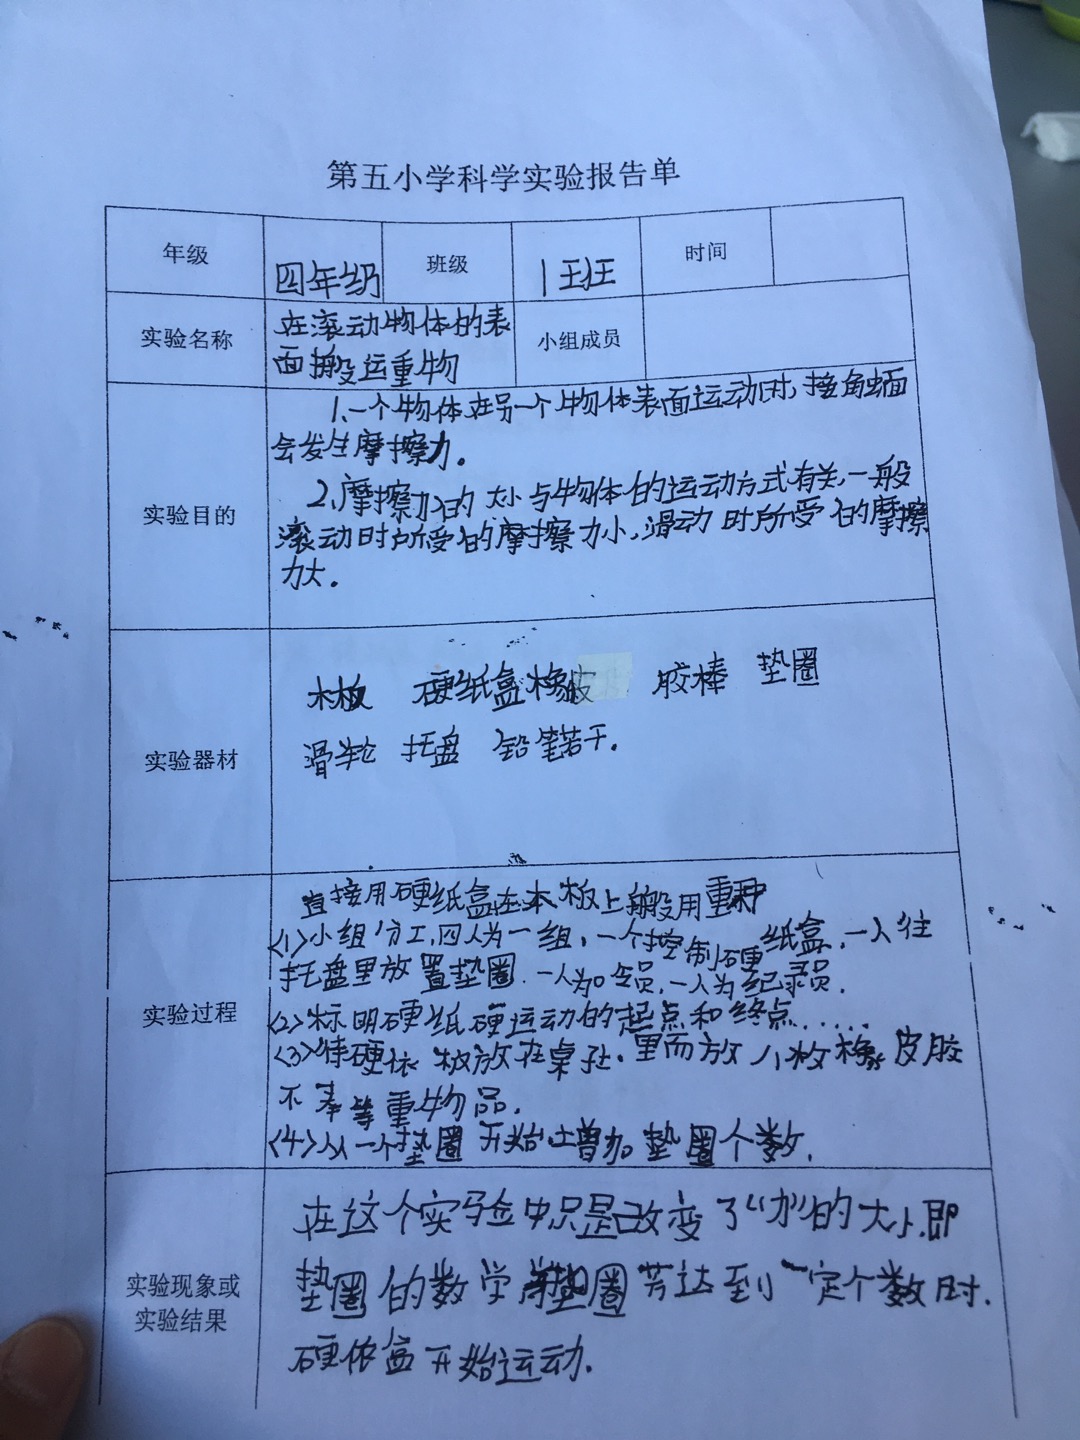 第五小学科学实验报告单
年级 四年级 班级 1班 时间
实验名称 在滚动物体的表 小组成员
面搬运重物
1.一个物体在另一个物体表面运动时,接角虫面
会发生摩擦力。
实验目的
2.摩擦力的大小与物体的运动方式有关,一般
滚动时所受的摩擦力小,滑动时所受的摩擦
力大。
木板 硬纸盒 橡皮 胶棒 垫圈
实验器材
滑轮 托盘 铅笔若干.
直接用硬纸盒在木板上搬用重
<1>小组分工,四人为一组,一个控制硬纸盒,一人往
托盘里放置垫圈.一人为 员,一人为纪录员.
实验过程
<2>标明硬纸硬运动的起点和终点......
<3>待硬 板放在桌子上.里而放小枚橡皮胶
不奉等重物品.
<4>从一个垫圈开始增加垫圈个数.
在这个实验中只是改变了“力”的大小.即
实验现象或
实验结果
垫圈的数学 垫圈 达到一定个数时.
硬侬盒开始运动.